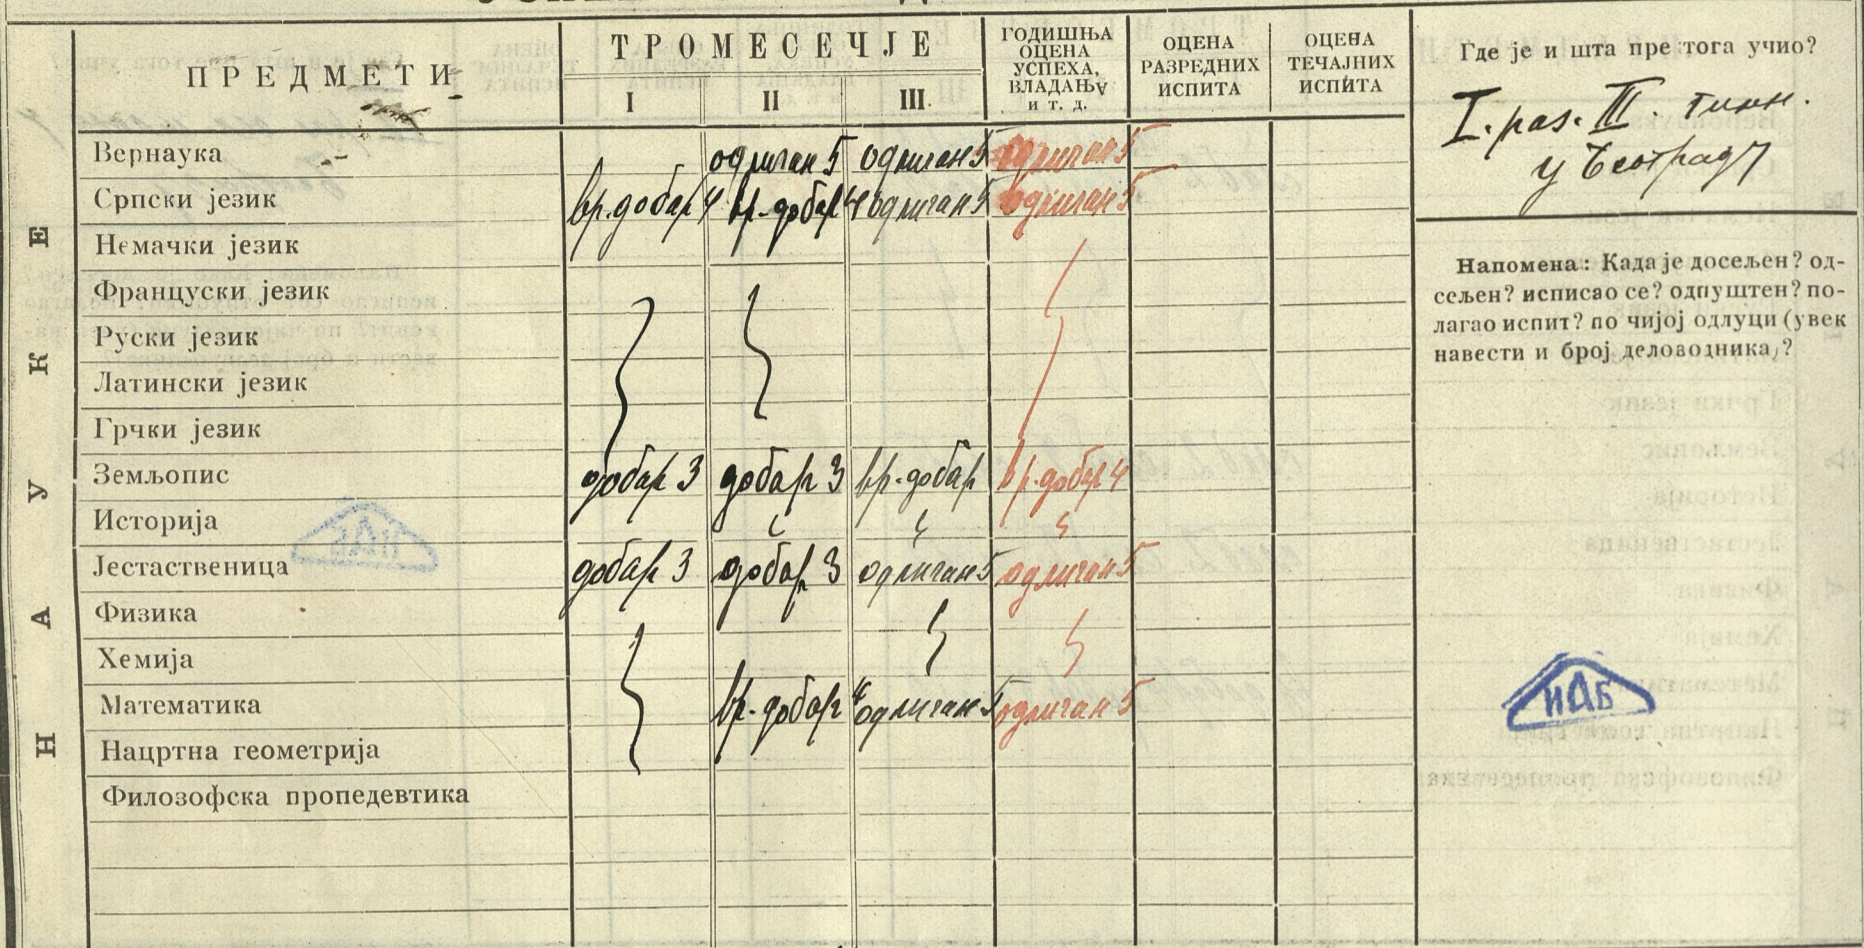 ПРЕДМЕТИ
ТРОМЕСЕЧЈЕ
I II III.
ГОДИШЊА ОЦЕНА УСПЕХА, ВЛАДАЊА И Т. Д.
ОЦЕНА РАЗРЕДНИХ ИСПИТА
ОЦЕНА ТЕЧАЈНИХ ИСПИТА
НАУКЕ
Вернаука одличан 5 одличан 5 одличан 5
Српски језик вр. добар 4 вр. добар 4 одличан 5 одличан 5
Немачки језик
Француски језик
Руски језик
Латински језик
Грчки језик
Земљопис добар 3 добар 3 вр. добар вр. добар 4
Историја
Јестаственица добар 3 добар 3 одличан 5 одличан 5
Физика
Хемија
Математика вр. добар 4 одличан 5 одличан 5
Нацртна геометрија
Филозофска пропедевтика
Где је и шта пре тога учио?
I. раз. III. гимн.
у Београду
Напомена: Када је досељен? од-
сељен? исписао се? одпуштен? по-
лагао испит? по чијој одлуци (увек
навести и број деловодника)?
ИАБ
ИАБ